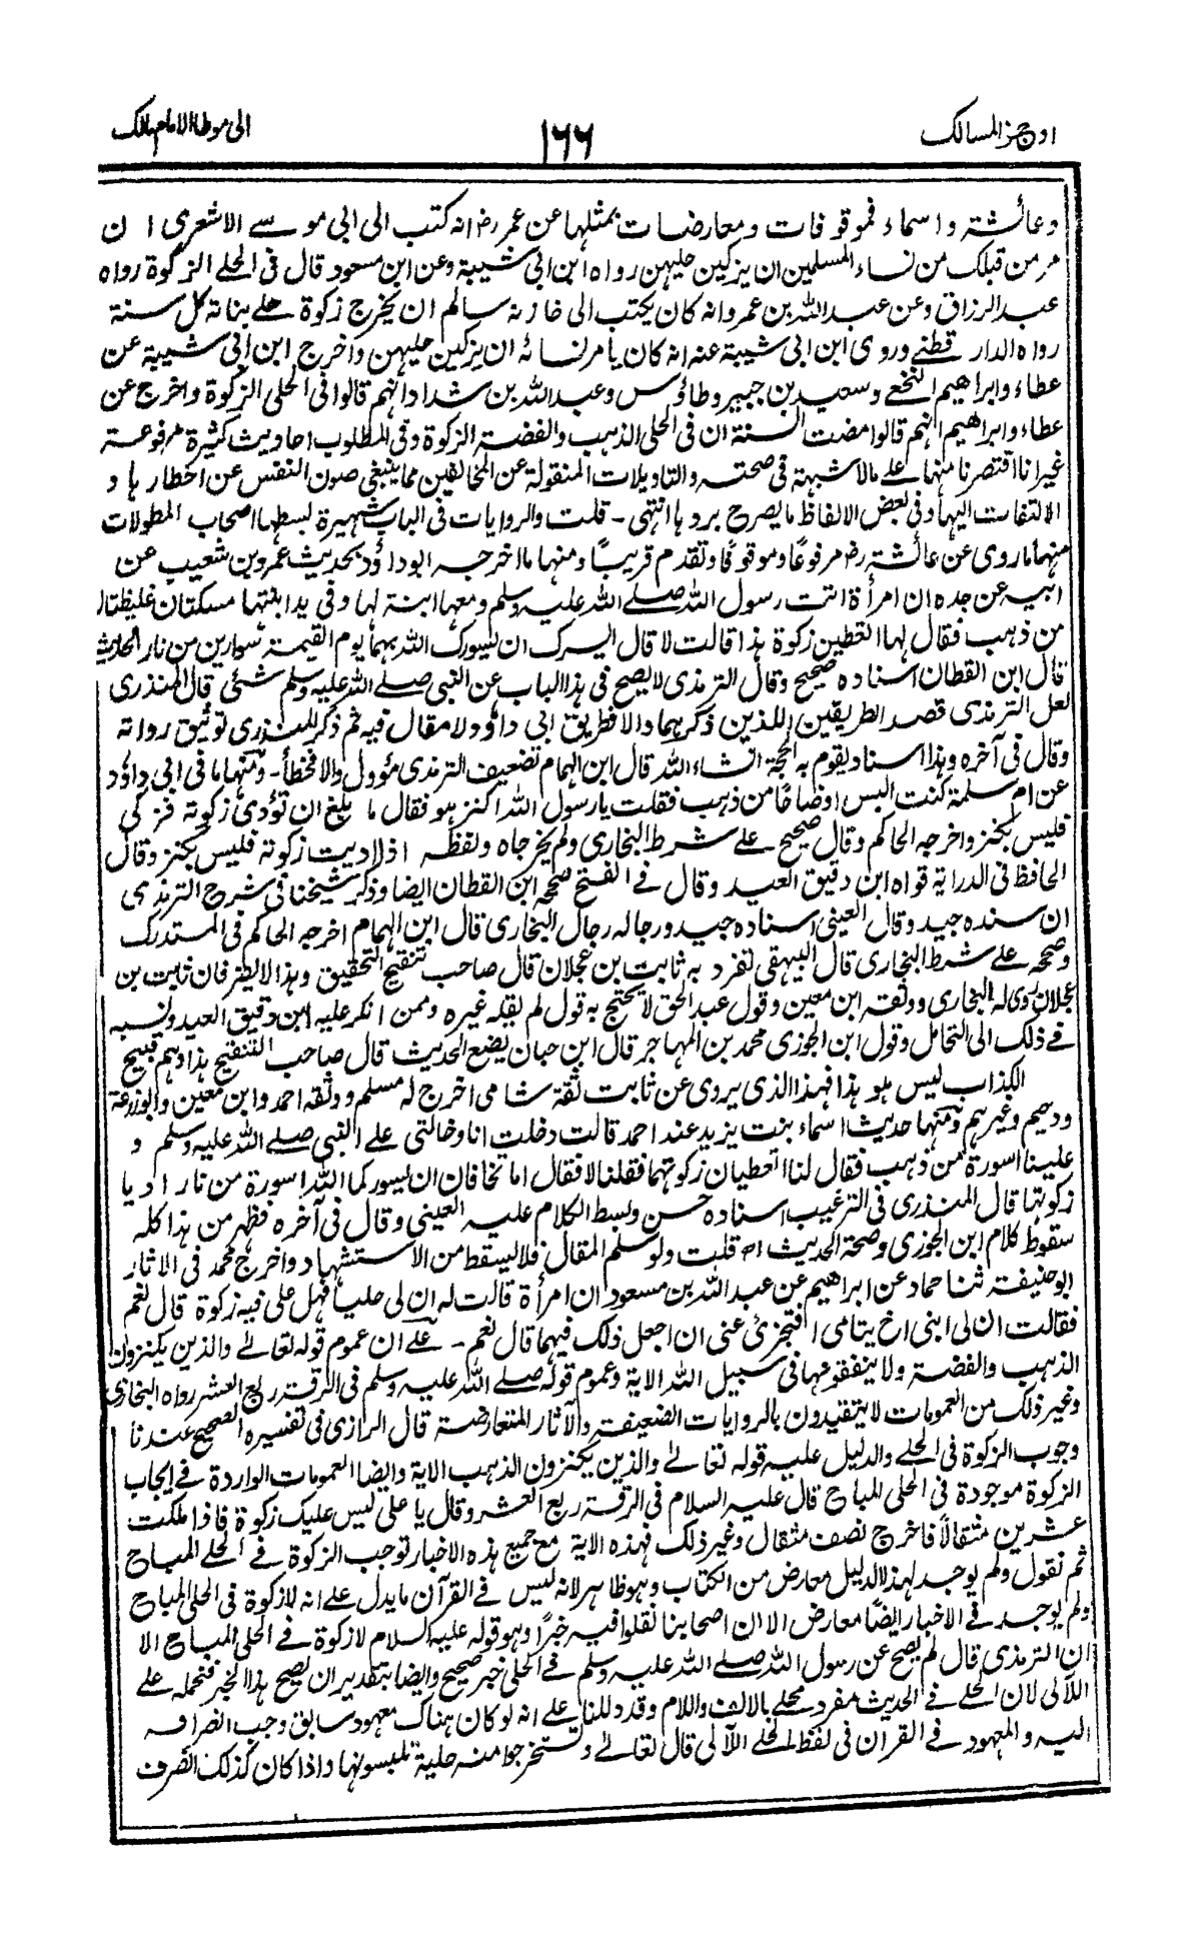 اوجز المسالك
١٦٦
الى موطا الامام مالك
وعائشة واسماء فموقوفات ومعارضات بمثلها عن عمر رض انه كتب الى ابى موسے الاشعرى ان
مر من قبلك من نساء المسلمين ان يزكين حليهن رواه ابن ابى شيبة وعن ابن مسعود قال فى الحلے الزكوة رواه
عبد الرزاق وعن عبد الله بن عمرو انه كان يكتب الى خازنه سالم ان يخرج زكوة حلے بناته كل سنة
رواه الدار قطنے وروى ابن ابى شيبة عنه انه كان يامر نسائه ان يزكين حليهن واخرج ابن ابى شيبة عن
عطاء وابراهيم النخعے وسعيد بن جبير وطاؤس وعبد الله بن شداد انهم قالوا فى الحلى الزكوة واخرج عن
عطاء وابراهيم انهم قالوا مضت السنة ان فى الحلى الذهب والفضة الزكوة وفى المطلوب احاديث كثيرة مرفوعة
غير انا اقتصرنا منها علے مالا شبهة فى صحته والتاويلات المنقولة عن المخالفين مما ينبغى صون النفس عن اخطارها و
الالتفات اليها وفى بعض الالفاظ ما يصرح بردها انتهى ـ قلت والروايات فى الباب شهيرة بسطها اصحاب المطولات
منها ماروى عن عائشة رض مرفوعًا وموقوفًا وتقدم قريبًا ومنها ما اخرجه ابوداؤد بحديث عمرو بن شعيب عن
ابيه عن جده ان امرأة اتت رسول الله صلے الله عليه وسلم ومعها ابنة لها وفى يد ابنتها مسكتان غليظتان
من ذهب فقال لها اتعطين زكوة هذا قالت لا قال ايسرك ان يسورك الله بهما يوم القيمة سوارين من نار الحديث
قال ابن القطان اسناده صحيح وقال الترمذى لا يصح فى هذا الباب عن النبى صلے الله عليه وسلم شئى قال المنذرى
لعل الترمذى قصد الطريقين اللذين ذكرهما والا فطريق ابى داؤد لا مقال فيه ثم ذكر المنذرى توثيق رواته
وقال فى آخره وهذا اسناد يقوم به الحجة انشاء الله قال ابن الهمام تضعيف الترمذى مؤول والا فخطأ ـ ومنها ما فى ابى داؤد
عن ام سلمة كنت البس اوضاحًا من ذهب فقلت يا رسول الله اكنز هو فقال ما بلغ ان تؤدى زكوته فزكى
فليس بكنز واخرجه الحاكم وقال صحيح علے شرط البخارى ولم يخرجاه ولفظه اذا اديت زكوته فليس بكنز وقال
الحافظ فى الدراية قواه ابن دقيق العيد وقال فے الفتح صححه ابن القطان ايضا وذكر شيخنا فى شرح الترمذى
ان سنده جيد وقال العينى اسناده جيد ورجاله رجال البخارى قال ابن الهمام اخرجه الحاكم فى المستدرك
وصححه علے شرط البخارى قال البيهقى تفرد به ثابت بن عجلان قال صاحب تنقيح التحقيق وهذا لا يضر فان ثابت بن
عجلان روى له البخارى ووثقه ابن معين وقول عبد الحق لا يحتج به قول لم يقله غيره وممن انكر عليه ابن دقيق العيد ونسبه
فے ذلك الى التحامل وقول ابن الجوزى محمد بن المهاجر قال ابن حبان يضع الحديث قال صاحب التنقيح هذا وهم قبيح
الكذاب ليس هو هذا فهذا الذى يروى عن ثابت ثقة شامى اخرج له مسلم ووثقه احمد وابن معين وابوزرعة
ودحيم وغيرهم ومنها حديث اسماء بنت يزيد عند احمد قالت دخلت انا وخالتى علے النبى صلے الله عليه وسلم و
علينا اسورة من ذهب فقال لنا اتعطيان زكوتهما فقلنا لا فقال اما تخافان ان يسوركما الله اسورة من نار اديا
زكوتها قال المنذرى فى الترغيب اسناده حسن وبسط الكلام عليه العينى وقال فى آخره فظهر من هذا كله
سقوط كلام ابن الجوزى وصحة الحديث اھ قلت ولو سلم المقال فلا يسقط من الاستشهاد واخرج محمد فى الاثار
ابوحنيفة ثنا حماد عن ابراهيم عن عبد الله بن مسعود ان امرأة قالت له ان لى حليا فهل على فيه زكوة قال نعم
فقالت ان لى ابنى اخ يتامى افتجزئ عنى ان اجعل ذلك فيهما قال نعم ـ علے ان عموم قوله تعالے والذين يكنزون
الذهب والفضة ولا ينفقونها فى سبيل الله الاية وعموم قوله صلے الله عليه وسلم فى الرقة ربع العشر رواه البخارى
وغير ذلك من العمومات لا يتقيدون بالروايات الضعيفة والآثار المتعارضة قال الرازى فى تفسيره الصحيح عندنا
وجوب الزكوة فى الحلے والدليل عليه قوله تعالے والذين يكنزون الذهب الاية وايضا العمومات الواردة فے ايجاب
الزكوة موجودة فى الحلى المباح قال عليه السلام فى الرقة ربع العشر وقال يا على ليس عليك زكوة فاذا ملكت
عشرين مثقالًا فاخرج نصف مثقال وغير ذلك فهذه الاية مع جميع هذه الاخبار توجب الزكوة فے الحلے المباح
ثم نقول ولم يوجد لهذا الدليل معارض من الكتاب وهو ظاهر لانه ليس فے القرآن ما يدل علے انه لا زكوة فى الحلى المباح
ولم يوجد فے الاخبار ايضًا معارض الا ان اصحابنا نقلوا فيه خبرًا وهو قوله عليه السلام لا زكوة فے الحلى المباح الا
ان الترمذى قال لم يصح عن رسول الله صلے الله عليه وسلم فے الحلى خبر صحيح وايضا بتقدير ان يصح هذا الخبر فنحمله علے
اللآلى لان الحلے فے الحديث مفرد محلے بالالف واللام وقد دللنا علے انه لو كان هناك معهود سابق وجب انصرافه
اليه والمعهود فے القران فى لفظ الحلے اللآلى قال تعالے وتستخرجوا منه حلية تلبسونها واذا كان كذلك انصرف